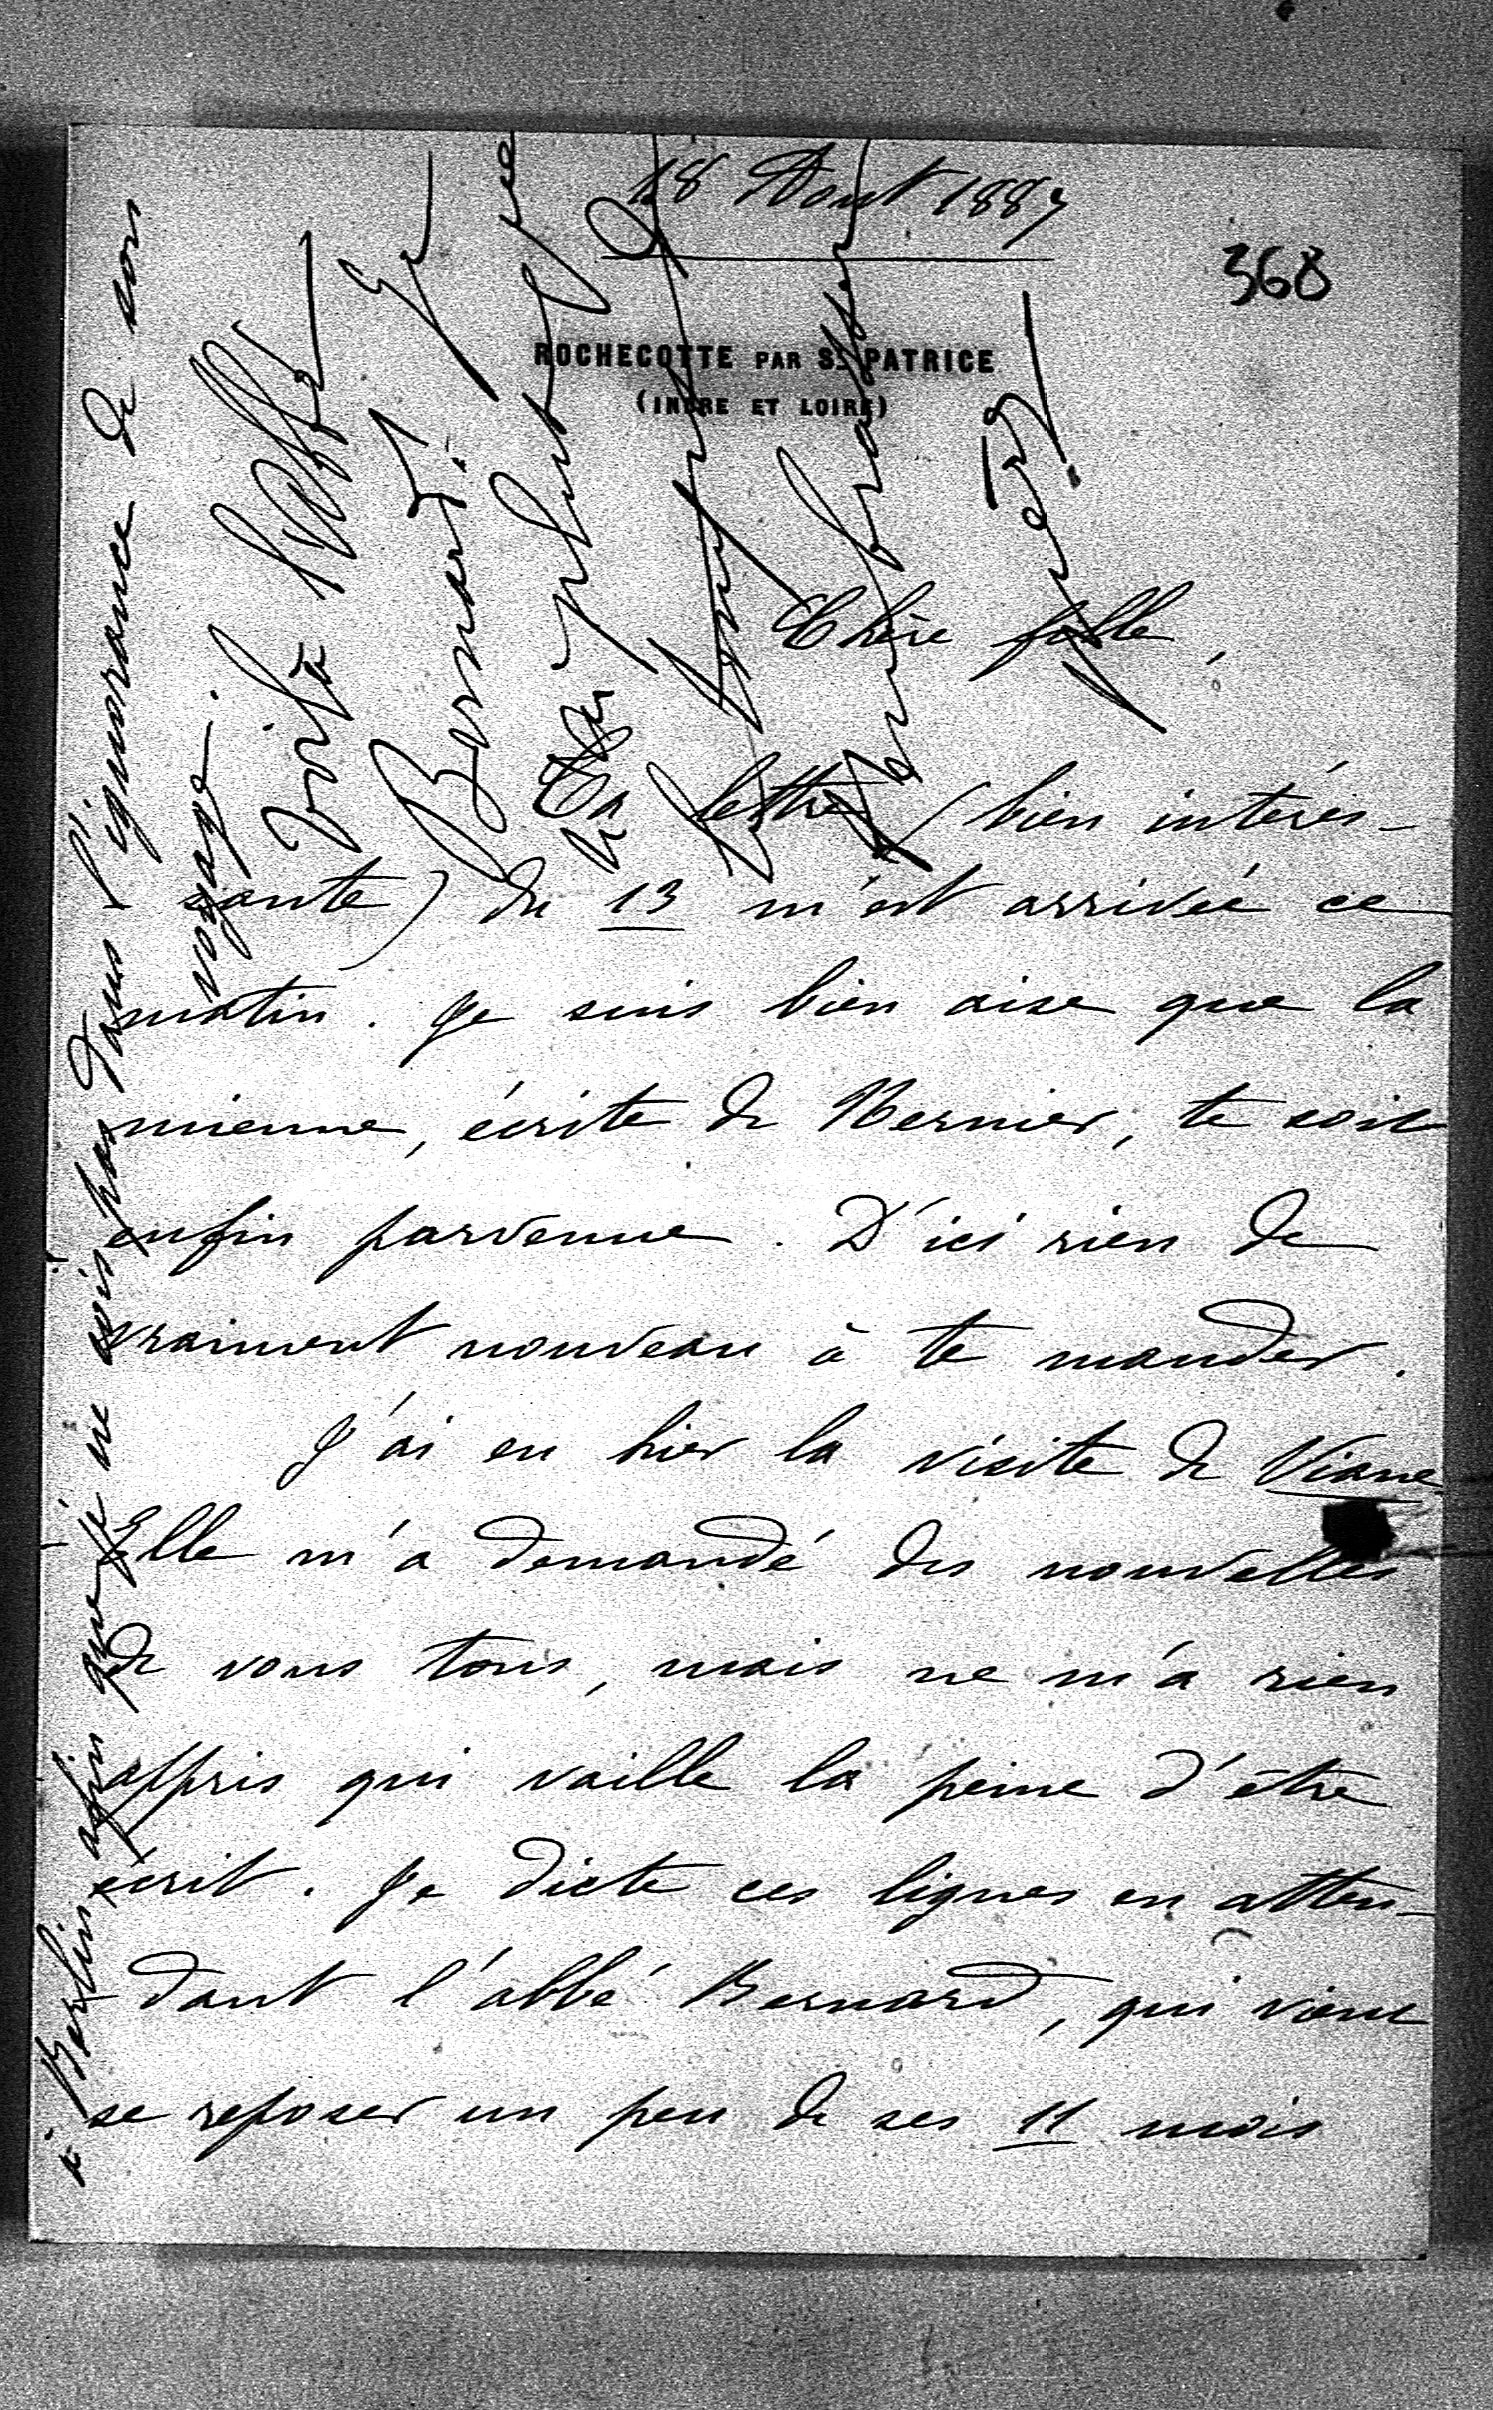 18 Aout 1887
368
ROCHECOTTE PAR St PATRICE
(INDRE ET LOIRE)
Chère folle,
Ta lettre (bien intérés-
sante) du 13 m'est arrivée ce
matin. Je suis bien aise que la
mienne, écrite de Mernier, te soit
enfin parvenue. D'ici rien de
vraiment nouveau à te mander.
J'ai eu hier la visite de Viane
Elle m'a demandé des nouvelles
de vous tous, mais ne m'a rien
appris qui vaille la peine d'être
écrit. Je dicte ces lignes en atten-
dant l'abbé Bernard, qui vient
se reposer un peu de ses 11 mois
à Berlin afin que je ne sois pas dans l'ignorance de son
voyage.
Voilà l'abbé
Bernard! Je
n'ai plus que
le temps de
t'embrasser